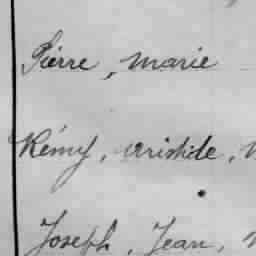 Pierre, marie
Rémy, aristide,
Joseph, Jean,